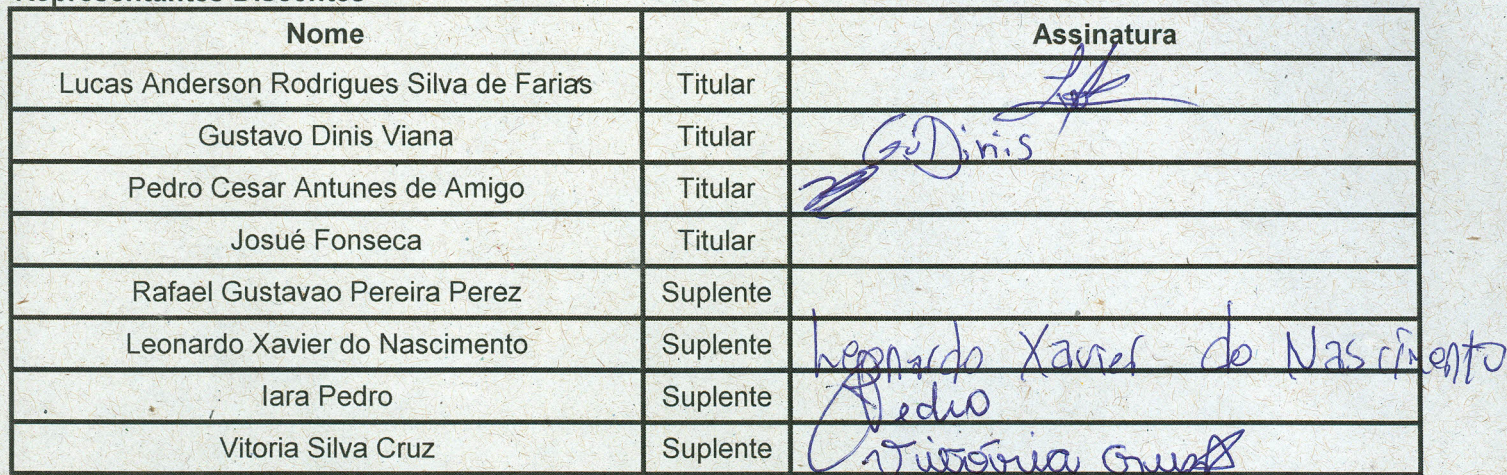 Representantes Discentes
Nome Assinatura
Lucas Anderson Rodrigues Silva de Farias Titular
Gustavo Dinis Viana Titular Gu Dinis
Pedro Cesar Antunes de Amigo Titular
Josué Fonseca Titular
Rafael Gustavao Pereira Perez Suplente
Leonardo Xavier do Nascimento Suplente Leonardo Xavier do Nascimento
Iara Pedro Suplente Pedro
Vitoria Silva Cruz Suplente Vitória Cruz